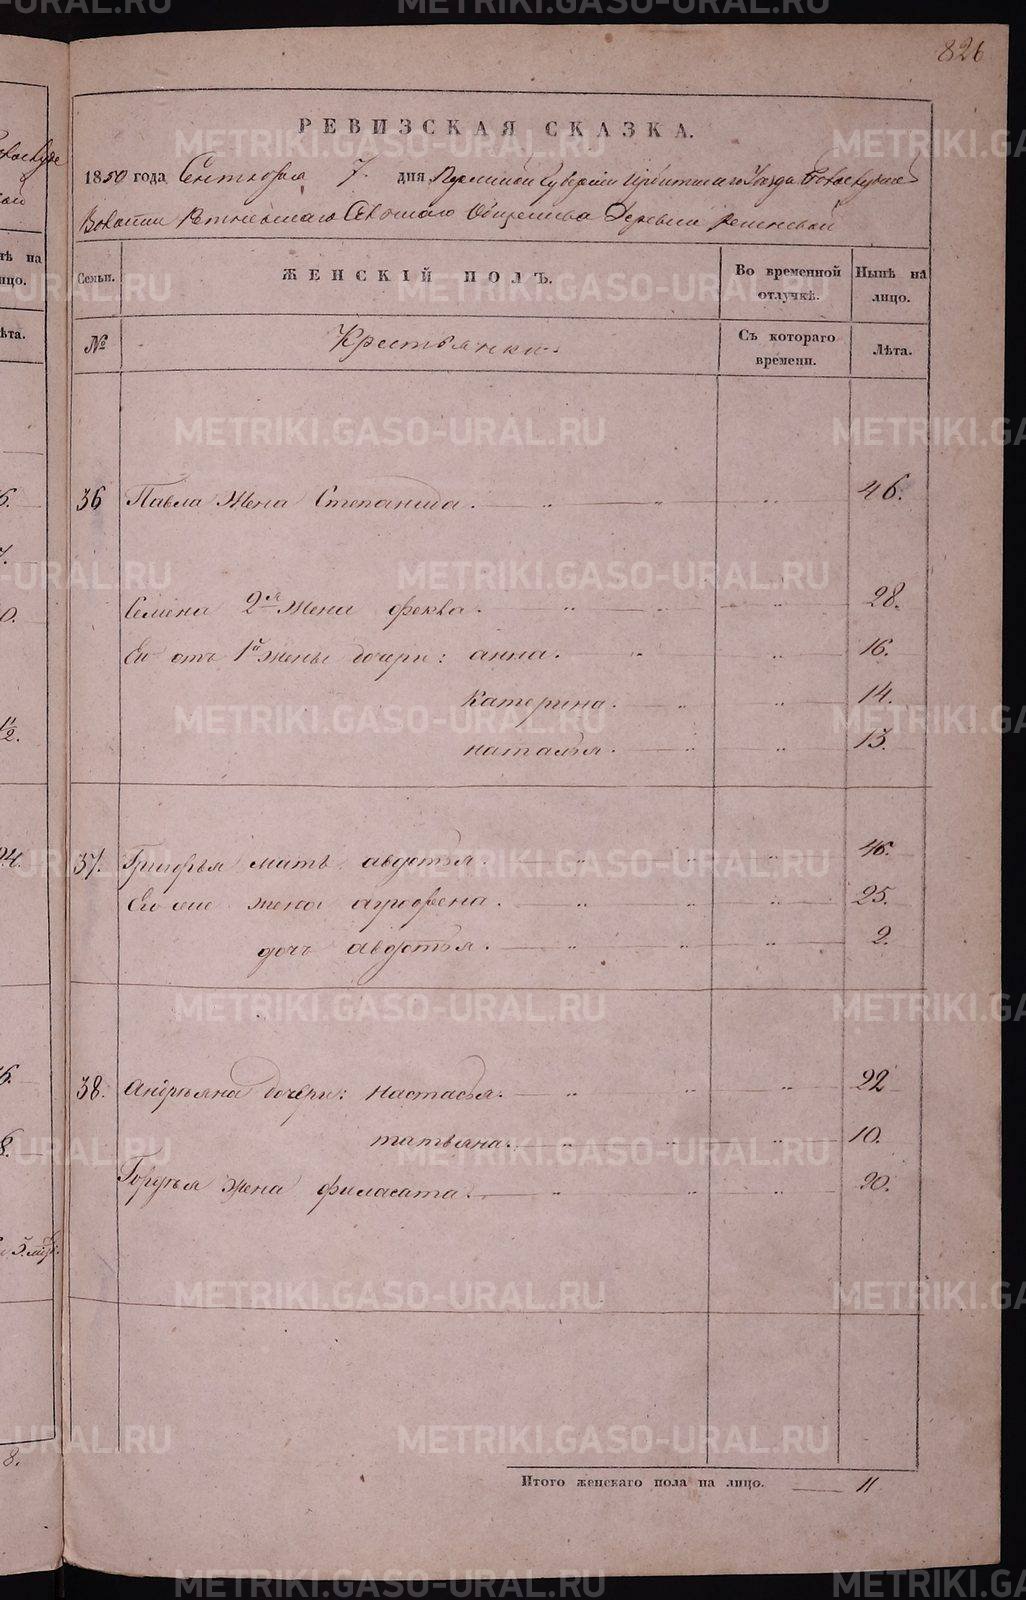 826
РЕВИЗСКАЯ СКАЗКА.
1850 года Сентября 7 дня Пермской Губернии Ирбитского Уезда
Волости Сельскаго Общества Деревни
Семьи. ЖЕНСКІЙ ПОЛЪ. Во временной отлучкѣ. Нынѣ на лицо.
№ Крестьянки. Съ котораго времени. Лѣта.
36 Павла жена Степанида. 46.
Семена 2я жена Фекла. 28.
Ея отъ 1й жены дочери: Анна. 16.
Катерина. 14.
Наталья. 13.
37. Григорья мать Авдотья. 46.
Его же жена Агрофена. 25.
дочь Авдотья. 2.
38. Андрѣяна дочери: Настасья. 22
Татьяна. 10.
жена Филасата. 20.
Итого женскаго пола на лицо. 11
METRIKI.GASO-URAL.RU